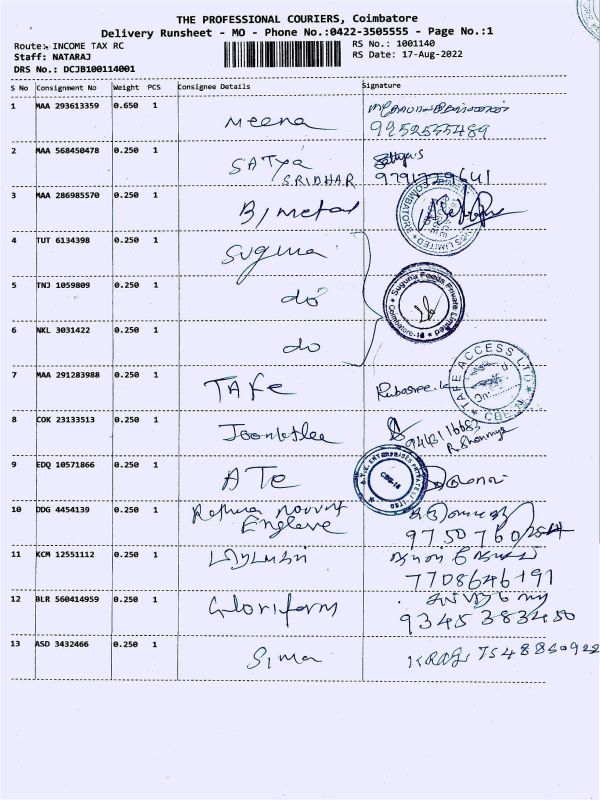 THE PROFESSIONAL COURIERS, Coimbatore
Delivery Runsheet - MO - Phone No.:0422-3505555 - Page No.:1
Route:- INCOME TAX RC
RS No.: 1001140
Staff: NATARAJ
RS Date: 17-Aug-2022
DRS No.: DCJB100114001
S No Consignment No Weight PCS Consignee Details Signature
1 MAA 293613359 0.650 1 Meena
9952535489
2 MAA 568450478 0.250 1 SATYA
SRIDHAR
9791779641
3 MAA 286985570 0.250 1 Bimetal
COIMBATORE
4 TUT 6134398 0.250 1 Suguna
5 TNJ 1059809 0.250 1 do
Suguna Feeds Private Limited
Coimbatore-18
6 NKL 3031422 0.250 1 do
7 MAA 291283988 0.250 1 TAFE
TAFE ACCESS LTD
CBE-18
8 COK 23133513 0.250 1
9 EDQ 10571866 0.250 1 ATE
A.T.E. ENTERPRISES PRIVATE LIMITED
CBE-18
10 DDG 4454139 0.250 1
11 KCM 12551112 0.250 1
7708646191
12 BLR 560414959 0.250 1 Gloriform
9345383450
13 ASD 3432466 0.250 1 Sima
7548850922